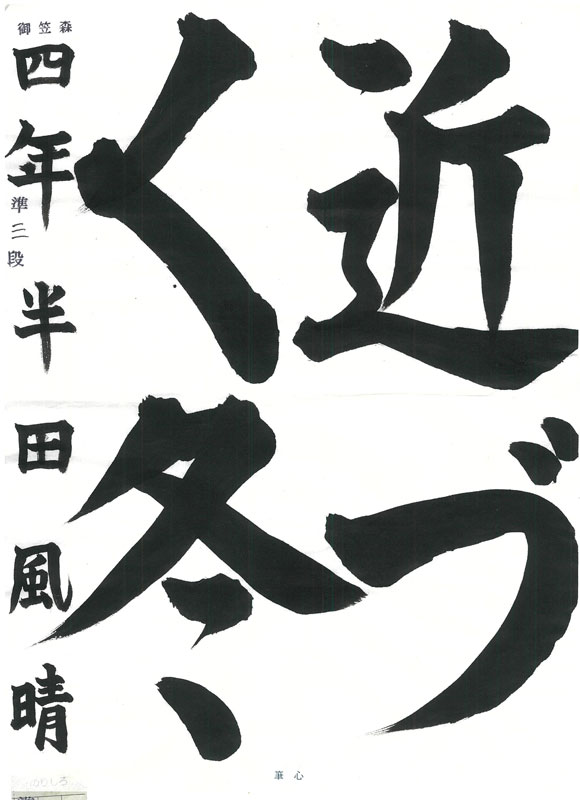 近づ
く冬
御笠森
四年 半田風晴
準三段
心筆
のりしろ